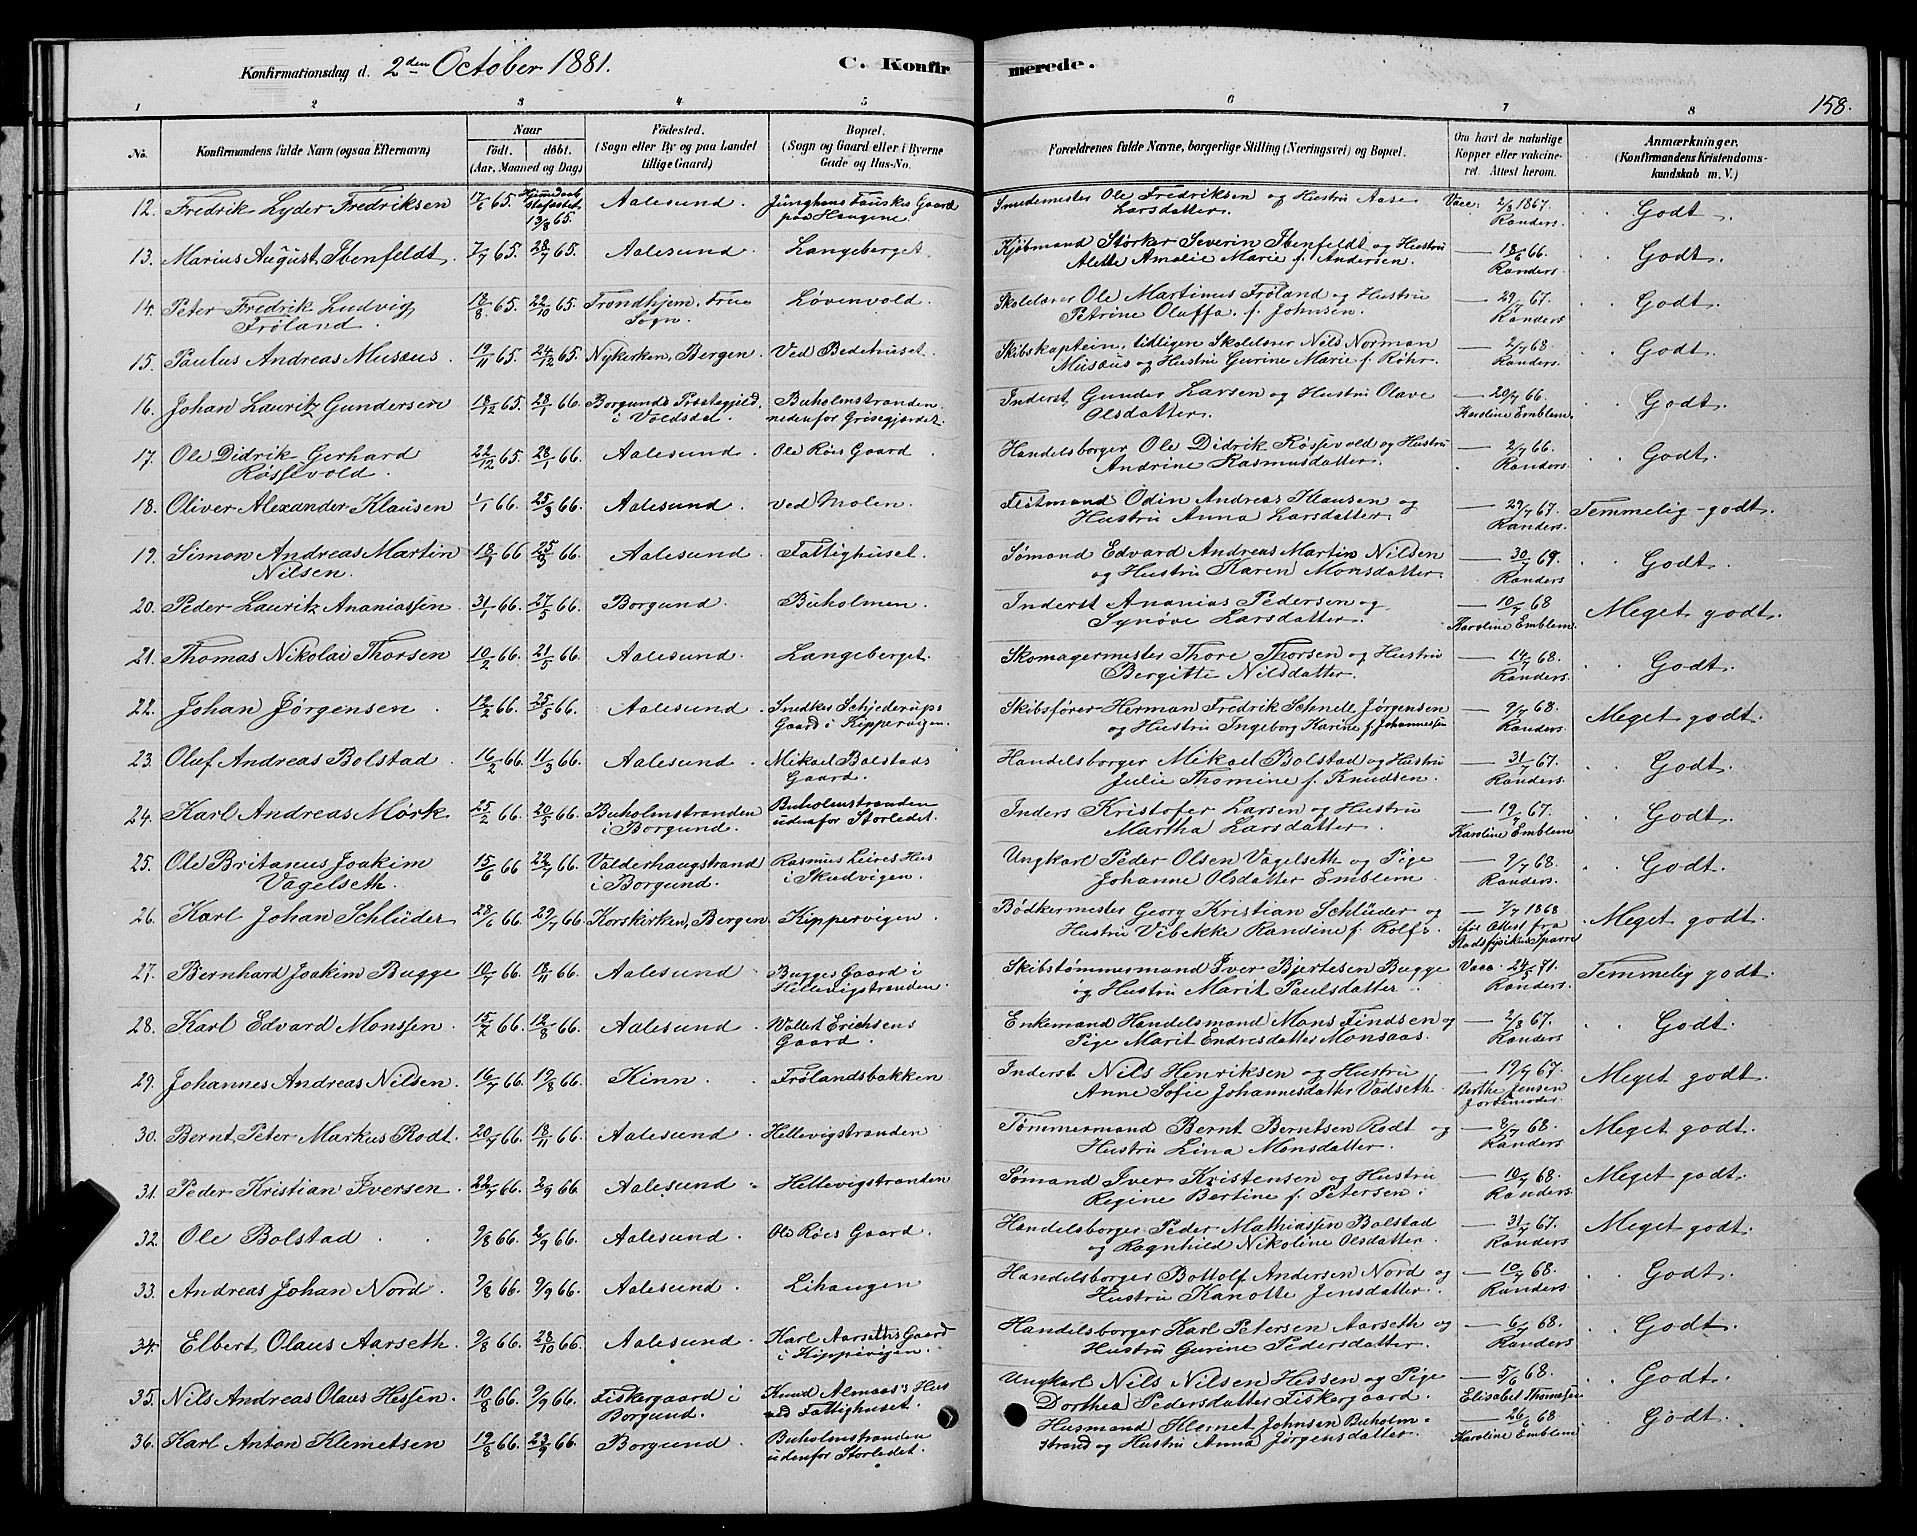 Konfirmationsdag d. 2den October 1881. C. Konfirmerede. 158.
1 2 3 4 5 6 7 8
No. Konfirmandens fulde Navn (ogsaa Efternavn) Naar født. døbt. (Aar, Maaned og Dag) Fødested. (Sogn eller By og paa Landet tillige Gaard) Bopæl. (Sogn og Gaard eller i Byerne Gade og Hus-No. Forældrenes fulde Navne, borgerlige Stilling (Næringsvei) og Bopæl. Om havt de naturlige Kopper eller vakcineret. Attest herom. Anmærkninger. (Konfirmandens Kristendomskundskab m. V.)
12. Fredrik Lyder Fredriksen 17/6 65. Hjemedøbt stafæstet 13/8 65. Aalesund. Junghans Fauskes Gaard paa Haugene. Smedemester Ole Fredriksen og Hustru Aase Larsdatter. Vacc. 2/8 1867. Randers. Godt.
13. Marius August Ibenfeldt. 7/7 65. 28/7 65. Aalesund. Langeberget. Kjøbmand Størker Severin Ibenfeldt og Hustru Alette Amalie Marie f. Andersen. — 18/6 66. Randers. Godt.
14. Peter Fredrik Ludvig Frøland. 18/8 65. 22/10 65. Trondhjem. Frue Sogn. Løvenvold. Skolelærer Ole Martinus Frøland og Hustru Petrine Oluffa f. Johnsen. — 29/7 67. Randers. Godt.
15. Paulus Andreas Musæus. 19/11 65. 24/12 65. Nykerken, Bergen. Ved Bedehuset. Skibskaptein, tidligere Skolelærer Nils Norman Musæus og Hustru Gurine Marie f. Røhr. — 2/7 68. Randers. Godt.
16. Johan Lauritz Gundersen 18/12 65. 28/1 66. Borgunds Præstegjeld. i Voldsdal. Buholmstranden nedenfor Grisegjærdet. Inderst Gunder Larsen og Hustru Olave Olsdatter. — 20/7 66. Karoline Emblem. Godt.
17. Ole Didrik Gerhard Røssevold. 22/12 65. 28/1 66. Aalesund. Ole Røes Gaard. Handelsborger Ole Didrik Røssevold og Hustru Andrine Rasmusdatter. — 2/7 66. Randers. Godt.
18. Oliver Alexander Klausen 1/1 66. 25/3 66. Aalesund. ved Molen. Feitmand Odin Andreas Klausen og Hustru Anna Larsdatter. — 29/7 67. Randers. Temmelig-godt.
19. Simon Andreas Martin Nilsen. 18/1 66. 25/3 66. Aalesund. Fattighuset. Sømand Edvard Andreas Martin Nilsen og Hustru Karen Monsdatter. — 30/7 69. Randers. Godt.
20. Peder Lauritz Ananiassen. 31/1 66. 27/5 66. Borgund. Buholmen. Inderst Ananias Pedersen og Synøve Larsdatter. — 10/7 68 Karoline Emblem. Meget godt.
21. Thomas Nikolai Thorsen 10/2 66. 21/5 66. Aalesund. Langeberget. Skomagermester Thore Thorsen og Hustru Bergitte Nilsdatter. — 14/7 68. Randers. Godt.
22. Johan Jørgensen. 12/2 66. 25/5 66. Aalesund. Snedker Schjederups Gaard i Kippervigen. Skibsfører Herman Fredrik Schnell Jørgensen og Hustru Ingeborg Karine f. Johannesen — 9/7 68. Randers. Meget godt.
23. Oluf Andreas Bolstad. 16/2 66. 11/3 66. Aalesund. Mikael Bolstads Gaard. Handelsborger Mikael Bolstad og Hustru Julie Thomine f. Knudsen. — 31/7 67. Randers. Godt.
24. Karl Andreas Mørk 25/2 66. 20/5 66. Buholmstranden i Borgund. Buholmstranden udenfor Storledet. Inders Kristofer Larsen og Hustru Martha Larsdatter. — 19/7 67. Karoline Emblem Godt.
25. Ole Britanus Joakim Vagelseth. 15/6 66 22/7 66. Valderhaugstrand i Borgund. Rasmus Leires Hus i Skudvigen. Ungkarl Peder Olsen Vagelseth og Pige Johanne Olsdatter Emblem. — 9/7 68. Randers. Godt.
26. Karl Johan Schlüder 28/6 66. 29/7 66. Korskerken, Bergen Kippervigen. Bødkermester Georg Kristian Schlüder og Hustru Vibekke Randine f. Rolfs. — 7/7 1868 iføl. Attest fra Stadsfysikus Sparre Meget godt.
27. Bernhard Joakim Bugge 10/7 66. 18/11 66. Aalesund. Bugges Gaard i Hellevigstranden. Skibstømmermand Iver Bjertesen Bugge og Hustru Marit Paulsdatter. Vacc. 24/5 71. Randers. Temmelig godt.
28. Karl Edvard Monssen. 15/7 66. 12/8 66. Aalesund. Wollert Erichsens Gaard. Enkemand Handelsmand Mons Findsen og Pige Marit Endresdatter Monsaas. — 2/8 67. Randers Godt.
29. Johannes Andreas Nilsen. 16/7 66. 19/8 66. Kinn. Frølandsbakken Inderst Nils Henriksen og Hustru Anne Sofie Johannesdatter Vadseth. — 19/7 67. Berthe Jensen Jordemoder. Meget godt.
30. Bernt Peter Markus Rodt. 20/7 66. 18/11 66. Aalesund. Hellevigstranden Tømmermand Bernt Berntsen Rodt og Hustru Lina Monsdatter. — 8/7 68. Randers. Meget godt.
31. Peder Kristian Iversen. 22/7 66. 2/9 66. Aalesund. Hellevigstranden Sømand Iver Kristensen og Hustru Regine Bertine f. Petersen. — 10/7 68. Randers. Meget godt.
32. Ole Bolstad. 9/8 66. 2/9 66. Aalesund. Ole Røes Gaard. Handelsborger Peder Mathiassen Bolstad og Ragnhild Nikoline Olsdatter. — 31/7 67. Randers. Meget godt.
33. Andreas Johan Nord. 9/8 66. 9/9 66. Aalesund. Lihaugen Handelsborger Bottolf Andersen Nord og Hustru Kanotte Jensdatter. — 10/7 68. Randers. Godt.
34. Elbert Olaus Aarseth. 9/8 66. 28/10 66. Aalesund. Karl Aarseths Gaard i Kippervigen. Handelsborger Karl Petersen Aarseth og Hustru Gurine Pedersdatter. — 6/7 68. Randers. Godt.
35. Nils Andreas Olaus Hessen. 10/8 66. 9/9 66. Fiskergaard i Borgund. Knud Almaas's Hus ved Fattighuset. Ungkarl Nils Nilsen Hessen og Pige Dorthea Pedersdatter Fiskergaard. — 5/6 68. Elisabet Thomesen Godt.
36. Karl Anton Klemetsen 19/8 66. 23/9 66. Borgund. Buholmstranden udenfor Storledet. Husmand Klemet Johnsen Buholmstrand og Hustru Anna Jørgensdatter. — 26/6 68 Karoline Emblem Godt.